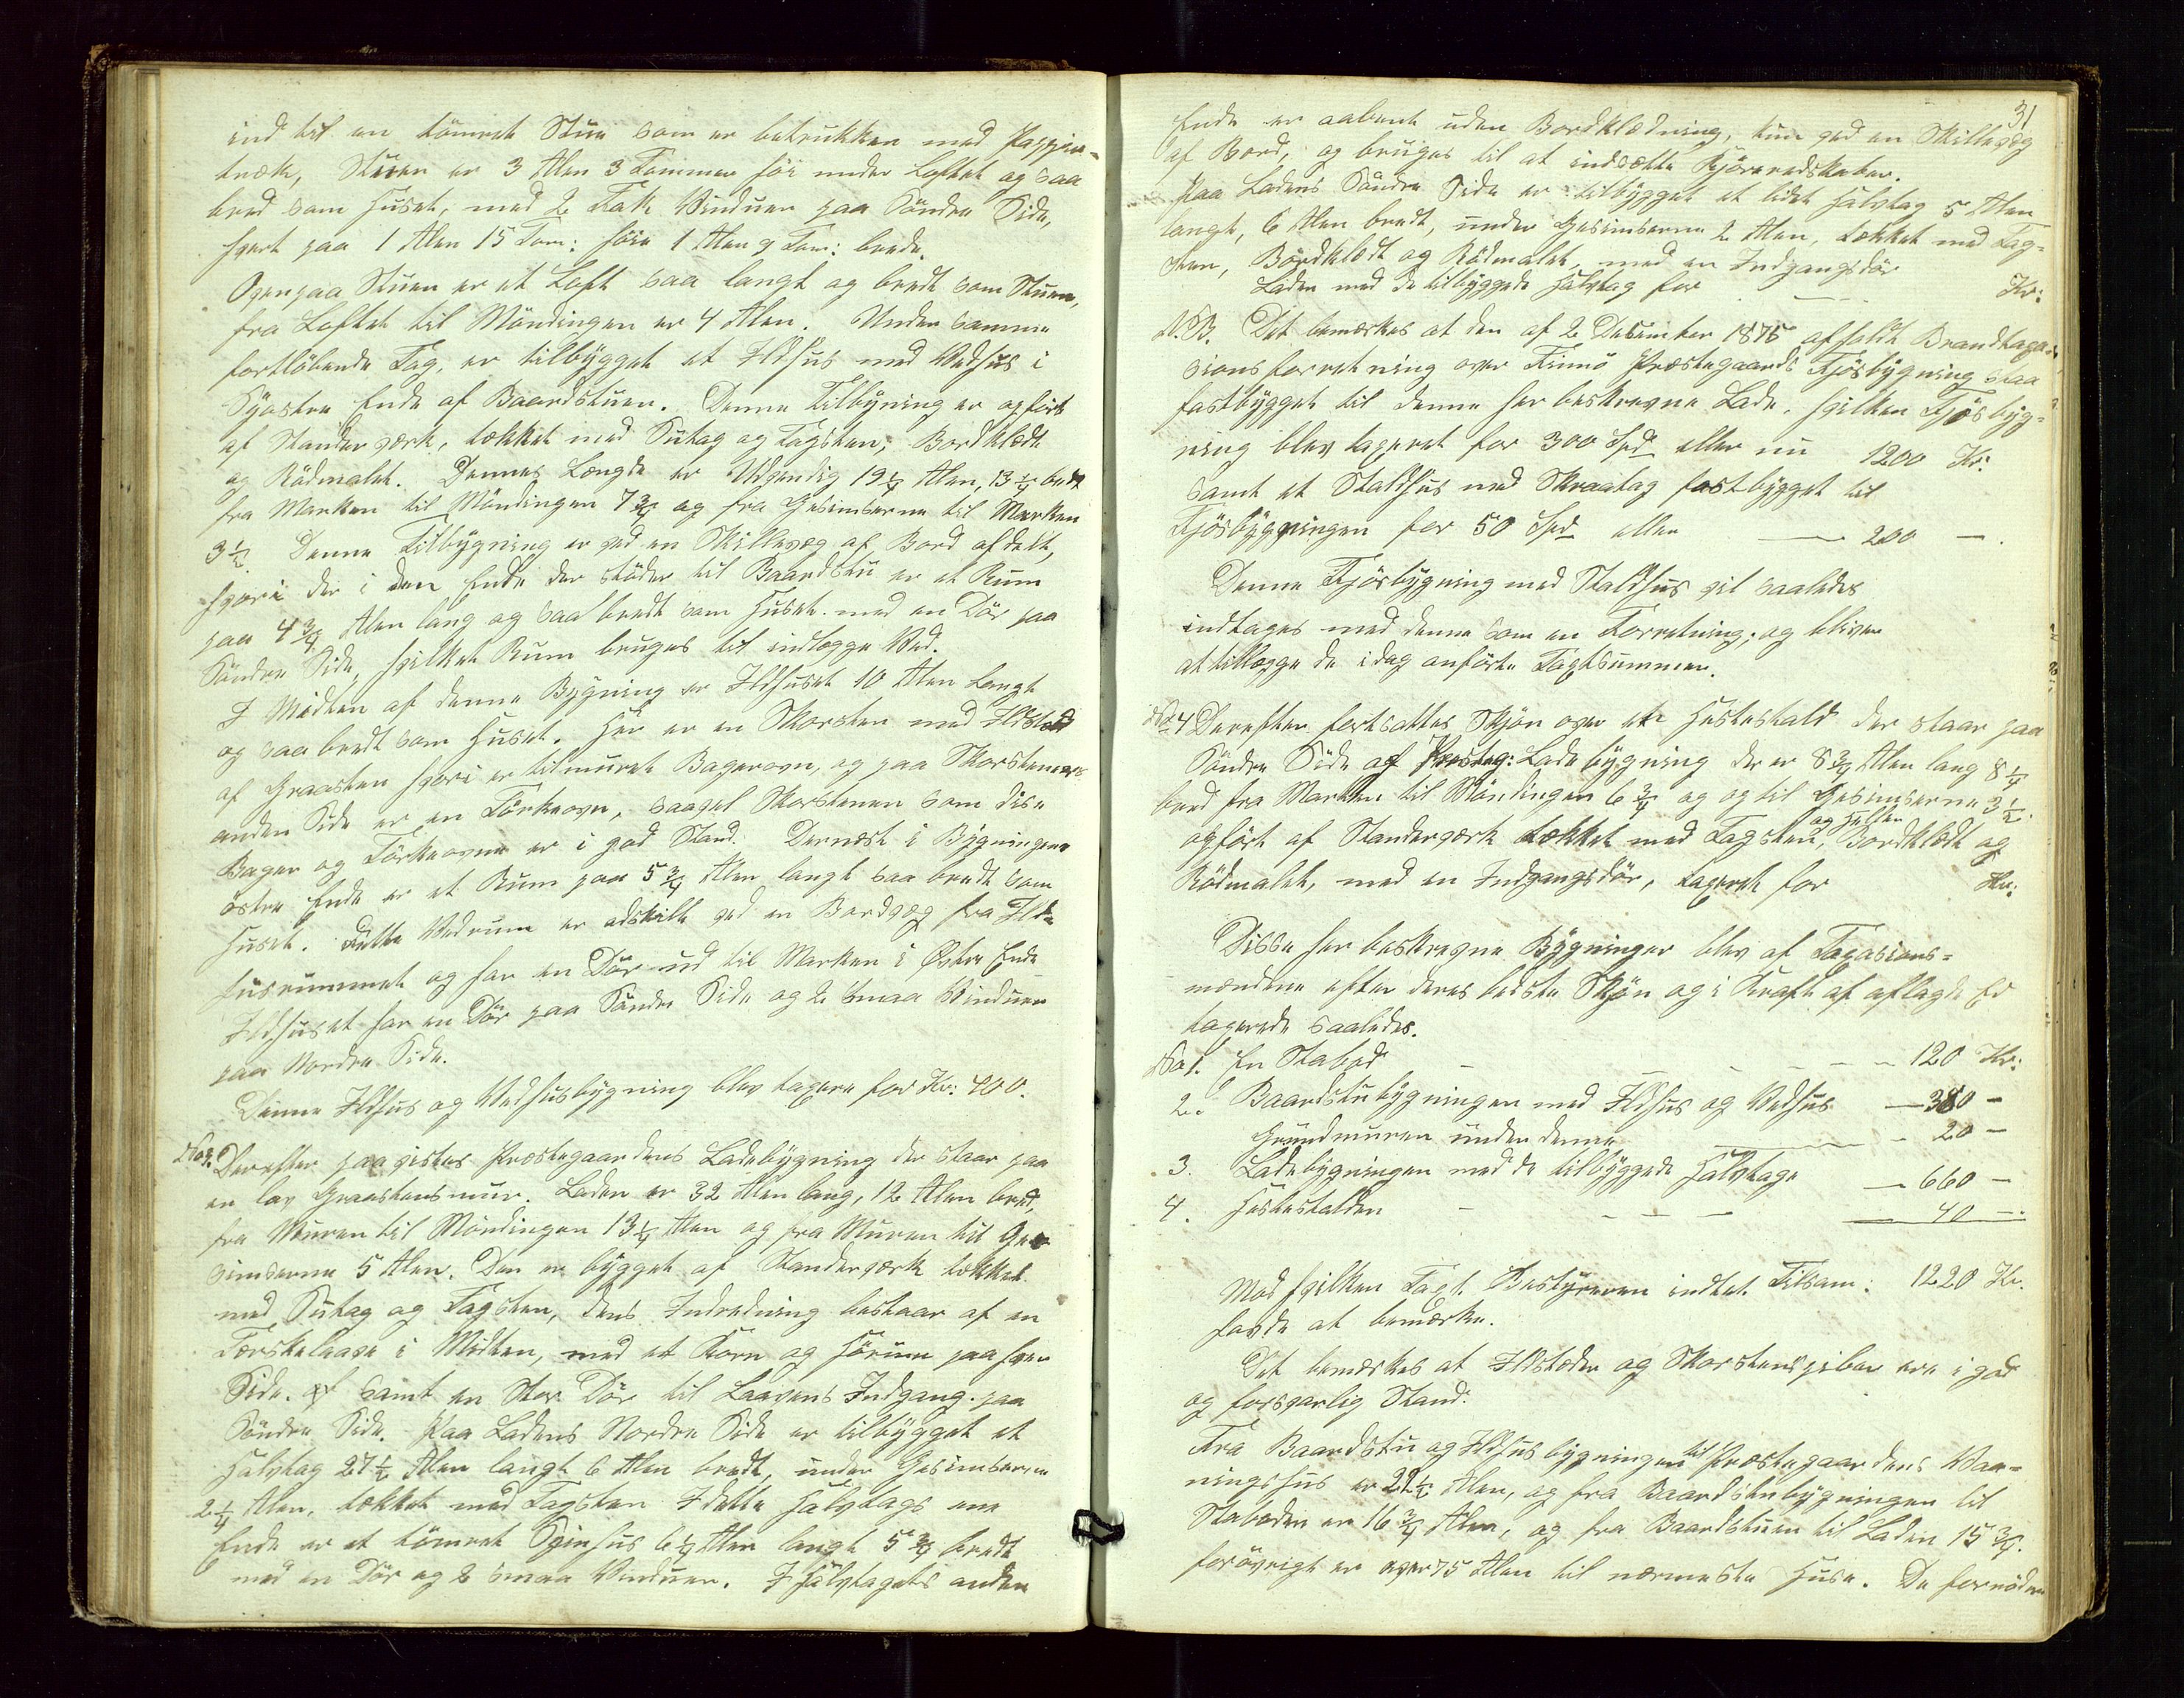 ind til en tömret Stue som er betrukken med Pappie-
træk, Stuen er 3 Alen 3 Tommer höi under Loftet og saa
bred som Huset, med 2 Fak Vinduer paa Söndre Side,
hvert paa 1 Alen 15 Tom: höie 1 Alen 9 Tom: brede.
Ovenpaa Stuen er et Loft saa langt og bredt som Stuen,
fra Loftet til Möndingen er 4 Alen. Under samme
fortlöbende Tag, er tilbygget et Ildhus med Vedhus i
Syöstre Ende af Baardstuen. Denne Tilbyning er opfört
af Standerværk, tækket med Sutag og Tagsten, Bordklædt
og Rödmalet. Dennes Længde er Udvendig 19¼ Alen, 13½ bredt
fra Marken til Möndingen 7¾ og fra Gesimserne til Marken
3½ Denne Tilbygning er ved en Skillevæg af Bord afdelt,
hvori der i den Ende der stöder til Baardstu er et Rum
paa 4¾ Alen lang og saa bredt som Huset med en Dör paa
Söndre Side, hvilket Rum bruges til indlægge Ved.
I Midten af denne Bygning er Ildhuset 10 Alen langt
og saa bredt som Huset. Her er en Skorsten med Ildsted
af Graasten hvori er tilmuret Bagerovn, og paa Skorstenens
anden Side er en Törkeovn, saavel Skorstenen som disse
Bager og Törkeovne er i god Stand. Dernæst i Bygningens
östre Ende er et Rum paa 5¾ Alen langt saa bredt som
Huset. Dette Vedrum er adskilt ved en Bordvæg fra Ild-
husrummet og har en Dör ud til Marken i Østre Ende
Ildhuset har en Dör paa Söndre Side og 2 smaa Vinduer
paa Nordre Side.
Denne Ildhus og Vedhusbygning blev taxere for Kr: 400.
No 3. Derefter paavistes Præstegaardens Ladebygning der staar paa
en lav Graastensmur. Laden er 32 Alen lang, 12 Alen bred,
fra Muren til Möndingen 13¼ Alen og fra Muren til Ge-
simserne 5 Alen. Den er bygget af Standerværk tækket
med Sutag og Tagsten, dens Indredning bestaar af en
Tærskelaave i Midten, med et Korn og Hörum paa hver
Side. samt en Stor Dör til Laavens Indgang paa
Söndre Side. Paa Ladens Nordre Side er tilbygget et
Halvtag 27½ Alen langt 6 Alen bredt, under Gesimserne
2¼ Alen, tækket med Tagsten I dette Halvtags ene
Ende er et tömret Svinhus 6¼ Alen langt 5¾ bredt
med en Dör og 2 smaa Vinduer. I Halvtagets anden
31
Ende er aabent uden Bordklædning, kun ved en Skillevæg
af Bord, og bruges til at indsætte Kjöreredskaber.
Paa Ladens Söndre Side er tilbygget et lidet Halvtag 5 Alen
langt, 6 Alen bredt, under Gesimserne 2 Alen, tækket med Tag-
sten, Bordklædt og Rödmalet, med en Indgangsdör
Laden med de tilbyggede Halvtag for Kr:
N.B. Det bemærkes at den af 2 Desember 1875 afholdt Brandtaxa-
sionsforretning over Finnö Præstegaards Fjösbygning staa
fastbygget til denne her beskrevne Lade, hvilken Fjösbyg-
ning blev taxeret for 300 Spd eller nu 1200 Kr:
samt et Staldhus med Skraatag fastbygget til
Fjösbyggningen for 50 Spd eller — 200 —.
Denne Fjösbygning med Staldhus vil saaledes
indtages med denne som en Forretning, og bliver
at tillægge de i dag anförte Taxtsummer.
No 4 Derefter fortsattes Skjön over et Hestestald der staar paa
Söndre Side af Præsteg: Ladebygning der er 8¾ Alen lang 8¼
bred fra Marken til Möndingen 6¾ og og til Gesimserne 3½.
og Heller
opfört af Standerværk tækket med Tagsten, Bordklædt og
Rödmalet, med en Indgangsdör, taxeret for Kr:
Disse her beskrevne Bygninger blev af Taxasions-
mændene efter deres bedste Skjön og i Kraft af aflagte Ed
taxerede saaledes.
No 1. En Stabod — — — 120 Kr:
2. Baardstubygningen med Ildhus og Vedhus — 380 —
Grundmuren under denne — 20 —
3. Ladebygningen med de tilbyggede Halvtage — 660 —
4. Hestestalden — — — 40 —
Mod hvilken Taxt Bestyreren indtet Tilsam: 1220 Kr.
havde at bemærke.
Det bemærkes at Ildstæder og Skorstenspiber ere i god
og forsvarlig Stand.
Fra Baardstu og Ildhusbygningen til Præstegaardens Vaa-
ningshus er 22½ Alen, og fra Baardstubygningen til
Staboden er 16¾ Alen, og fra Baardstuen til Laden 15¾.
forövrigt er over 75 Alen til nærmeste Huse. De fornödne